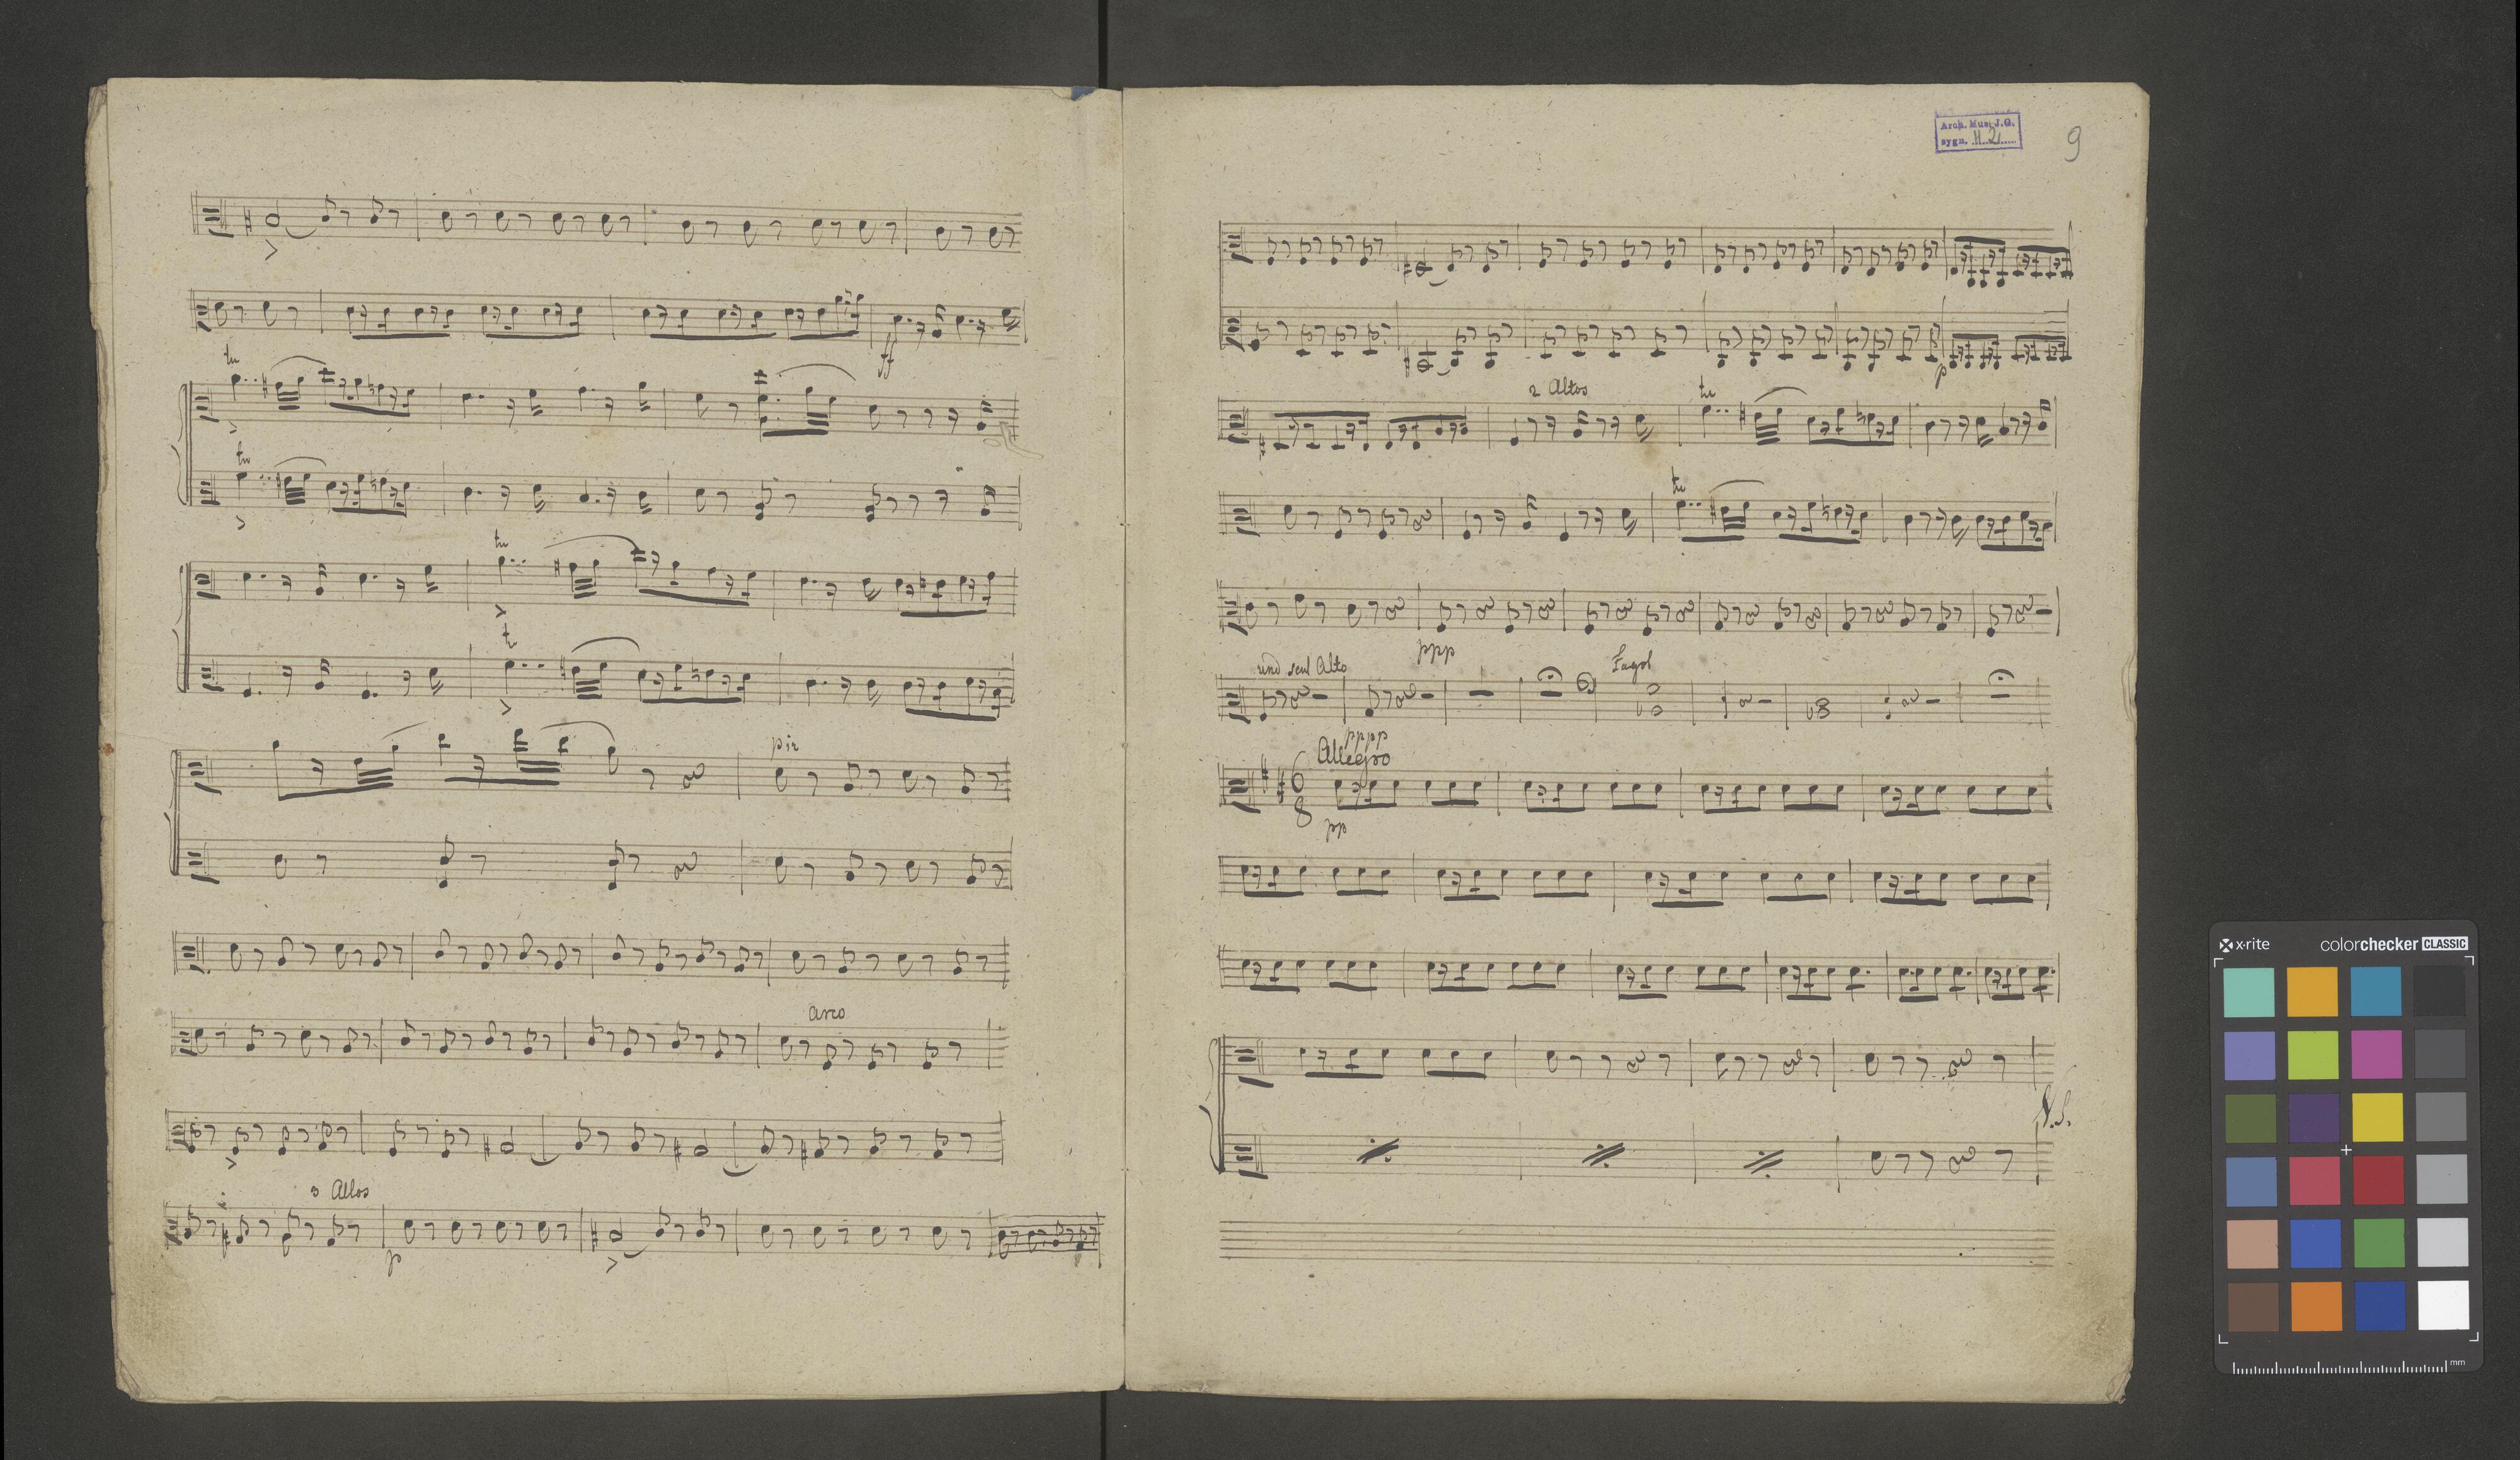 ff
tr
tr
tr
t
piz
arco
3 Altos
p
Arch. Mus. J.G.
sygn. II. 2
9
p
2 Altos
tr
tr
ppp
und seul Alto
Fagot
pppp
Allegro
6
8
pp
V.S.
x-rite
colorchecker CLASSIC
mm